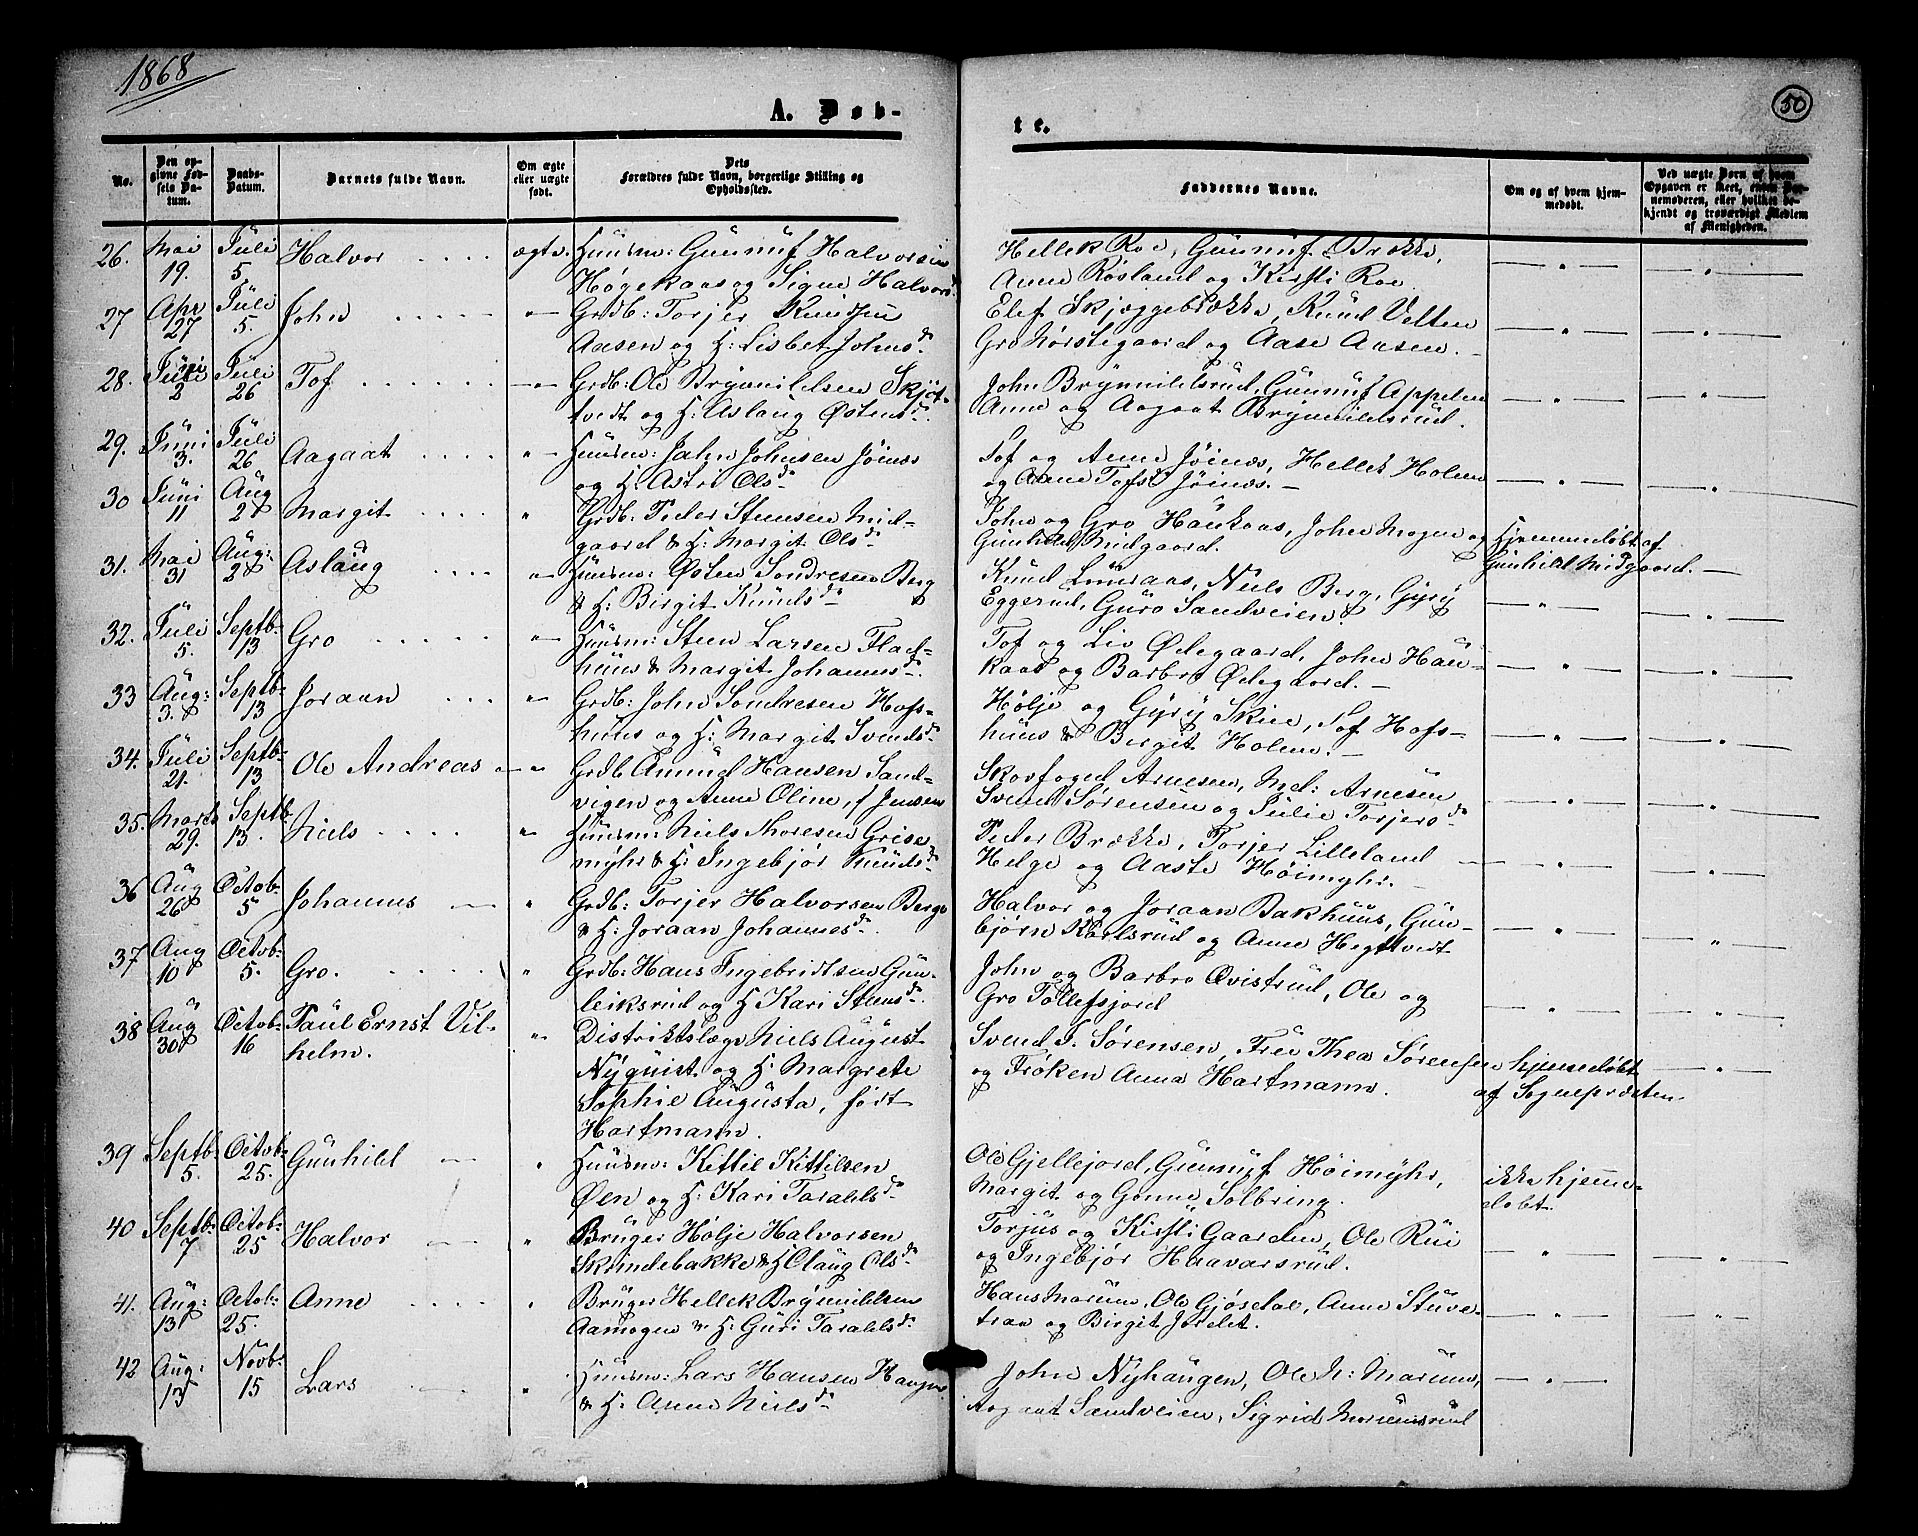 1868
50
A. Døb-
te.
No.
Den op-
givne Fød-
sels Da-
tum.
Daabs-
Datum.
Barnets fulde Navn.
Om ægte
eller uægte
født.
Dets
Forældres fulde Navn, borgerlige Stilling og
Opholdssted.
Faddernes Navne.
Om og af hvem hjem-
medøbt.
Ved uægte Børn af hvem
Opgaven er skeet, enten Bar-
nemoderen, eller hvilket be-
kjendt og troværdigt Medlem
af Menigheden.
26. Mai 19. Juli 5. Halvor ægte Huusm: Gunnuf Halvorsen
Høgekaas og Signe Halvorsd.
Hellek Roe, Gunnuf Brække,
Anne Røsland og Kirsti Roe
27 Apr 27 Juli 5. John Grdb: Torjer Knudsen
Aasen og H: Lisbet Johnsd.
Elef Skjeggebrække, Knud Velten
Gro Nørstegaard og Aase Aasen.
28. Juni 2 Juli 26 Tof Grdb: Ole Brynnildsen Skjöt-
vedt og H: Aslaug Østensd.
John Brynnildsrud, Gunnuf Appelen
Anne og Aagaat Brynnildsrud.
29. Juni 3. Juli 26 Aagaat Huusm: John Johnsen Jøinæs
og H: Astri Olsd.
Tof og Anne Jøinæs, Hellek Holmen
og Anne Tofsd. Jøinæs.
30 Juni 11 Aug 2 Margit Grdb: Peder Steensen Mid-
gaard & H: Margit Olsd.
John og Gro Haukaas, John Mogen og
Gunhild Midgaard.
Hjemmedøbt af
Gunhild Midgaard.
31. Mai 31 Aug: 2 Aslaug Huusm: Østen Sondresen Berg
& H: Birgit Knudsd.
Knud Lønaas, Niels Berg, Gyry
Eggerud, Guro Sandveien.
32. Juli 5. Septb- 13 Gro Huusm: Steen Larsen Flad-
huus & Margit Johannesd.
Tof og Liv Ødegaard, John Hau-
kaas og Barbro Ødegaard.
33 Aug: 3. Septb- 13 Joraan Grdb: John Sondresen Hofs-
huus og H: Margit Svendsd.
Hølje og Gyry Skien, Tof Hofs-
huus & Birgit Holmen.
34. Juli 21. Septb- 13 Ole Andreas Grdb Amund Hansen Sand-
vigen og Anne Oline, f Jensen
Skovfoged Arnesen, Md: Arnesen
Svend Sørensen og Julie Torjersd.
35. Marts 29. Septb 13. Niels Huusm: Niels Thoresen Grise-
myhr & H: Ingebjør Knudsd.
Peder Brække, Torjer Lilleland
Helge og Aaste Høimyhr.
36 Aug 26 Octob- 5 Johannes Grdb: Torjer Halvorsen Berge
& H: Joraan Johannesd.
Halvor og Joraan Bakhuus, Gun-
bjørn Karlsrud og Anne Hegtvedt
37 Aug 10 Octob- 5. Gro. Grdb: Hans Ingebridtsen Gun-
leiksrud og H Kari Steensd.
John og Barbro Qvistrud, Ole og
Gro Tollefsjord
38 Aug 30 Octob- 16 Paul Ernst Vil-
helm.
Distriktslæge Niels August
Nyquist og H: Margrete
Sophie Augusta, født
Hartmann.
Svend S. Sørensen, Frue Thea Sørensen
og Frøken Anna Hartmann.
hjemedøbt
af Sognepræsten.
39 Septb- 5. Octob- 25. Gunhild Huusm: Kittil Kittilsen
Øen og H: Kari Taraldsd.
Ole Gjellejord, Gunnuf Høimyhr,
Margit og Gonne Solbring.
ikke hjemme-
døbt.
40 Septb- 7 Octob- 25 Halvor Bruger Hølje Halvorsen
Skrindebakke & H Olaug Olsd.
Torjus og Kirsti Gaarden, Ole Rui
og Ingebjør Haavarsrud.
41. Aug: 13 Octob: 25. Anne Bruger Hellek Brynnildsen
Aamogen & H: Guri Taraldsd.
Hans Moruum, Ole Gjøsedal, Anne Stuve-
traa og Birgit Jordet.
42 Aug: 13 Novb: 15 Lars Huusm: Lars Hansen Haugen
& H: Anne Nielsd.
John Nyhaugen, Ole N: Moruum,
Aagaat Sandveien, Sigrid Moruumsrud